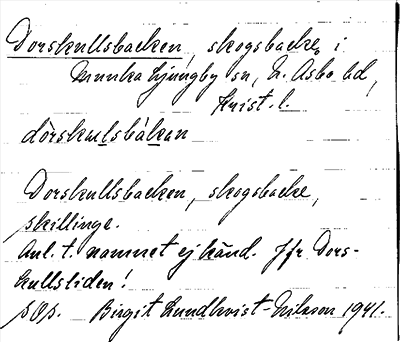 Dorskullsbacken, skogsbacke i
Munka Ljungby sn, N. Åsbo hd,
Krist. l.
dòrskulsbàkan
Dorskullsbacken, skogsbacke,
Skillinge.
Anl. t. namnet ej känd. Jfr Dors-
kullsliden!
sOs. Birgit Lundkvist-Nilsson 1941.